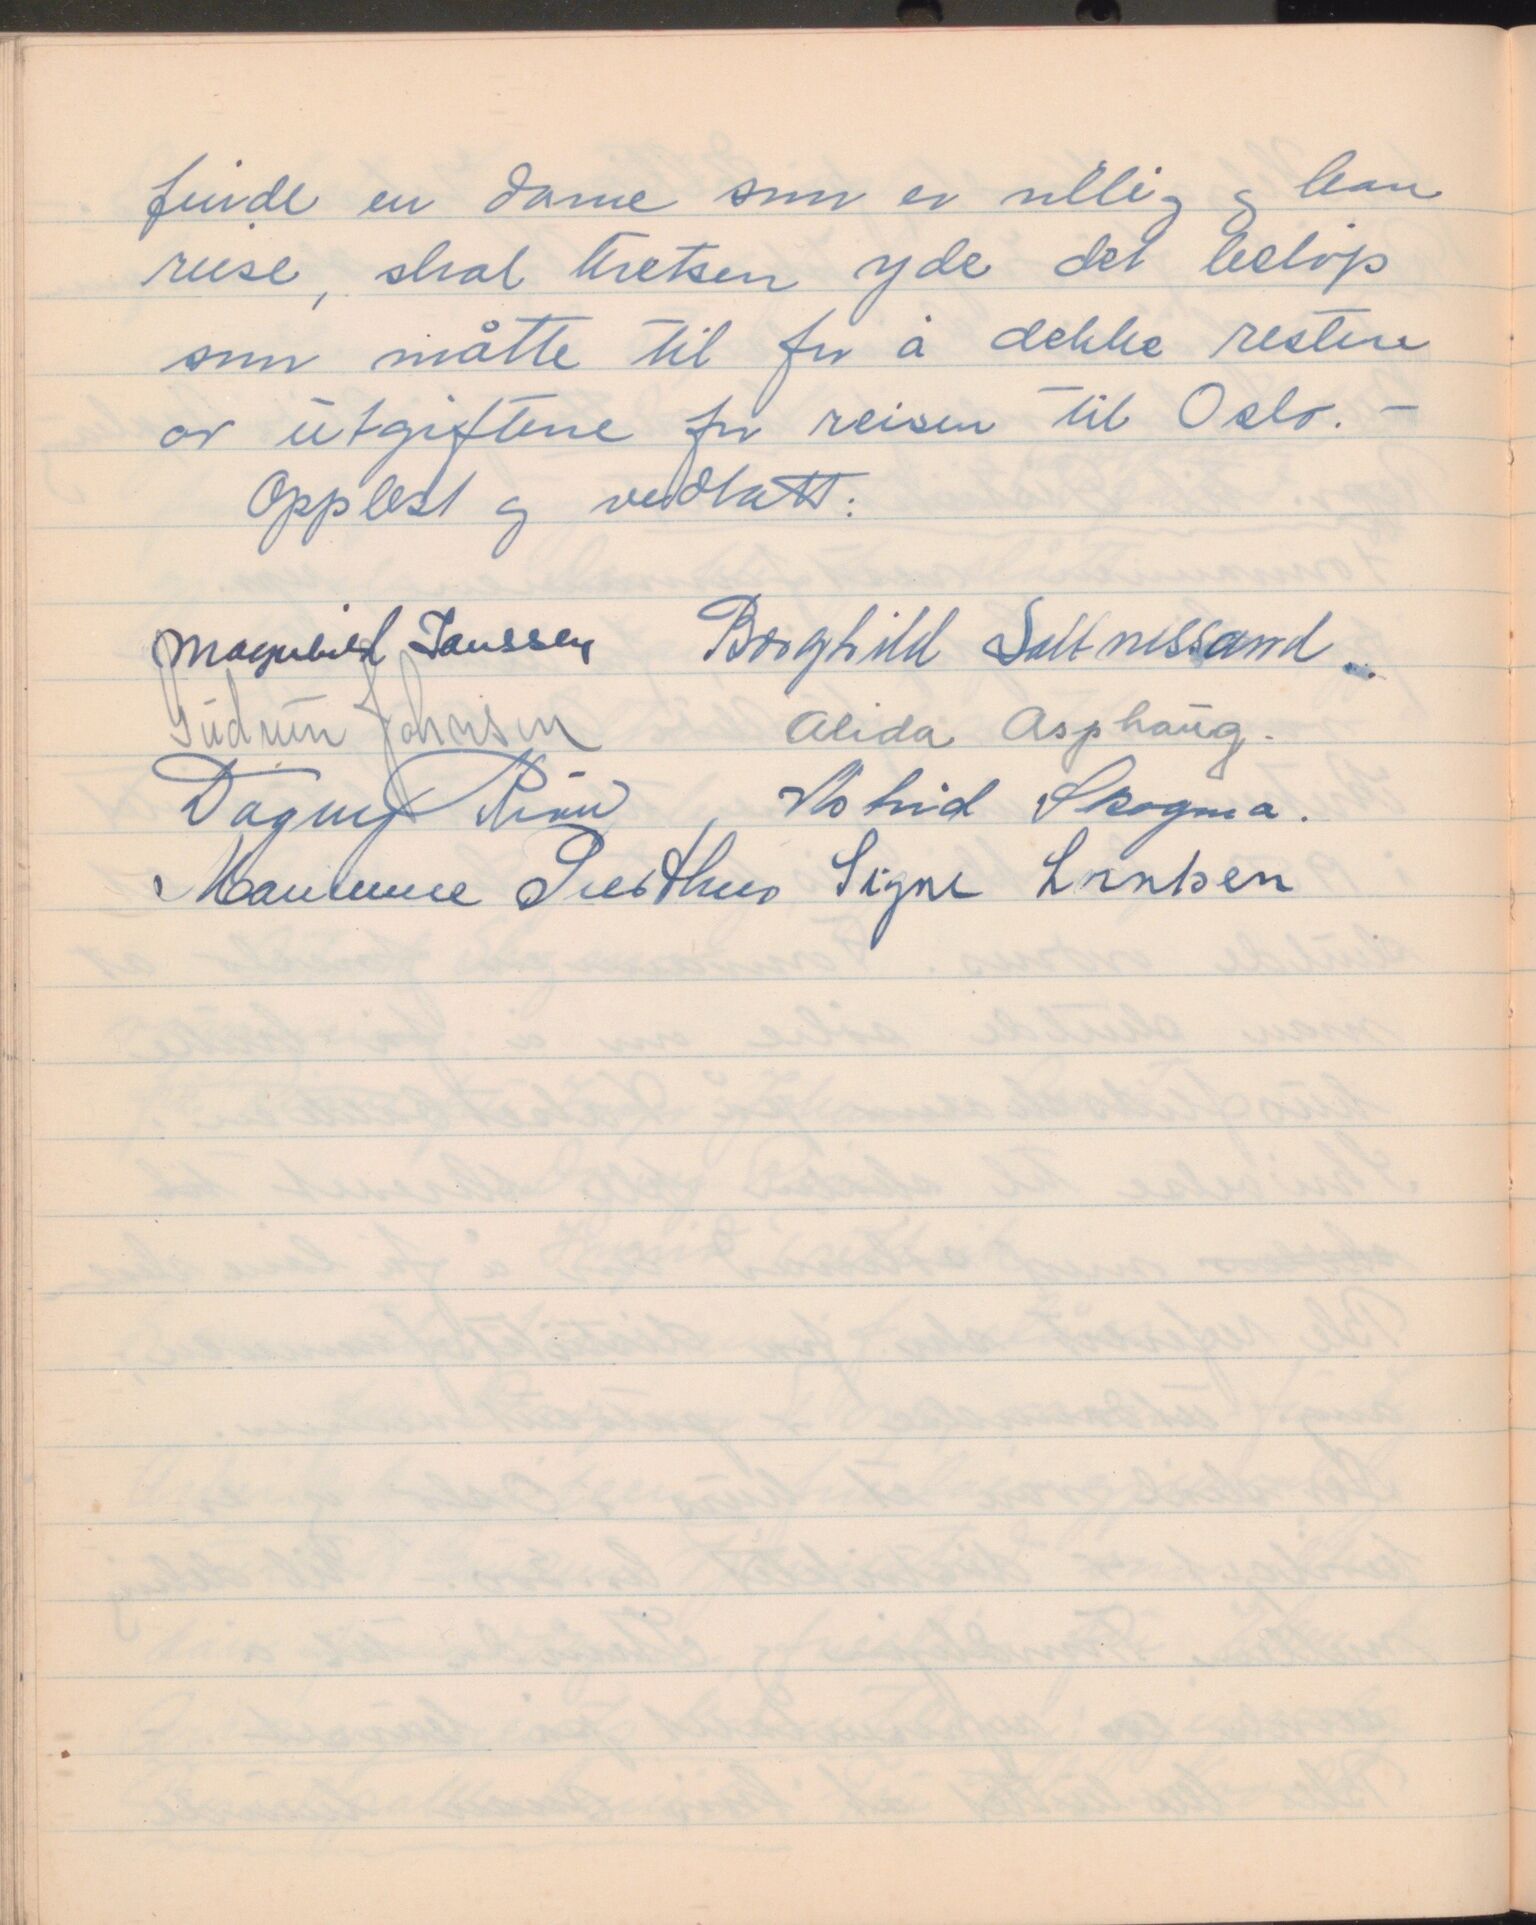 finde en dame som er villig og kan
reise, skal kretsen yde det beløp
som måtte til for å dekke resten
av utgiftene for reisen til Oslo. –
Opplest og vedtatt:
Magnhild Janssen Borghild Saltnessand.
Gudrun Johnsen Alida Asphaug.
Dagny Astrid Skogmo.
Marianne Presthus Signe Lorntsen